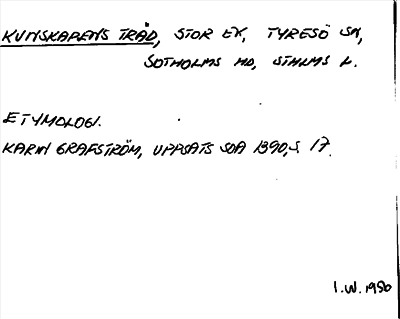 KUNSKAPENS TRÄD, STOR EK, TYRESÖ SN,
SOTHOLMS HD, STHLMS L.
ETYMOLOGI.
KARIN GRAFSTRÖM, UPPSATS SOA 1390, S. 17.
I.W. 1980